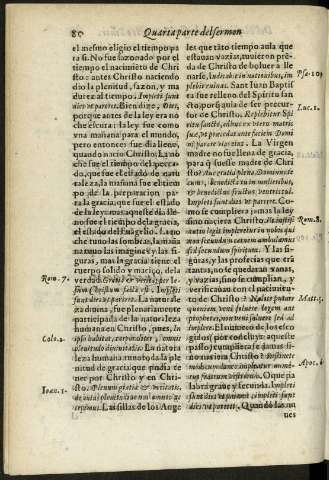 80 Quarta parte del sermon
el mesmo eligio el tiempo pa
ra si. No fue sazonado por el
tiempo el nacimiẽto de Chri
sto: antes Christo naciendo
dio la plenitud, sazon, y ma
durez al tiempo. Impleti sunt
dies vt pareret. Bien dize, Dies,
porque antes de la ley era no
che escura: la ley fue como
vna mañana para el mundo,
pero entonces fue dia lleno,
quando nacio Christo. La no
che fue el tiempo del pecca-
do, que fue el estado de natu
raleza, la mañana fue el tiem
po de la preparacion pa-
ra la gracia, que fue el estado
de la ley: mas aqueste dia lle-
no fue el tiempo de la gracia,
el estado del Euãgelio. La no
che tuuo las sombras, la maña
na tuuo las imagines y las fi-
guras, mas la gracia tiene el
cuerpo solido y maciço, de la
verdad. Gratia & veritas per Ie-
sum Christum facta est. Impleti
sunt dies vt pareret. La natura le
za diuina, fue plenariamente
participada de la naturaleza
humana en Christo, pues, In
ipso habitat, corporaliter, omnis
plenitudo diuinitatis. La natura
leza humana tuuo toda la ple
nitud de gracia que podia te
ner por Christo y en Chri-
sto. Plenum gratiæ & veritatis,
de cuius plenitudine nos omnes ac
cepimus. Las sillas de los Ange
les que tãto tiempo auia que
estauan vazias, tuuieron pren
das de Christo de boluer a lle
narse, Iudicabit in nationibus, im
plebit ruinas. Sant Iuan Baptista
fue lleno del Spiritu san
cto, porque auia de ser precur
sor de Christo. Replebitur Spi
ritu sancto, adhuc ex vtero matris
suæ, vt præcedat ante faciem Domi
ni parare viam eius. La Virgen
madre no fue llena de gracia,
para q̃ fuesse madre de Chri
sto? Aue gratia plena, Dominus te
cum, Benedicta tu in mulieribus,
& benedictus fructus ventris tui.
Impleti sunt dies vt pareret. Co-
mo se cumpliera jamas la ley
sino naciera Christo. Vt iustifi
catio legis impleretur in vobis qui
non secundum carnem ambulamus
sed secundum spiritum. Y las fi-
guras, y las profecias que erã
tantas, no se quedaran vanas,
y vazias, sino se cumplian, y
verificauan con el nacimiẽ-
to de Christo? Nolite putare
quoniam veni soluere legem aut
prophetas, non veni soluere sed ad
implere. El numero de los esco-
gidos por
Impleti
sunt dies vt pareret. Quando las nu
ues
Rom. 7.
Colo. 2.
Ioan. 1.
Psa. 109
Luc. 1.
Rom. 8.
Matt. 5.
Apoc. 6